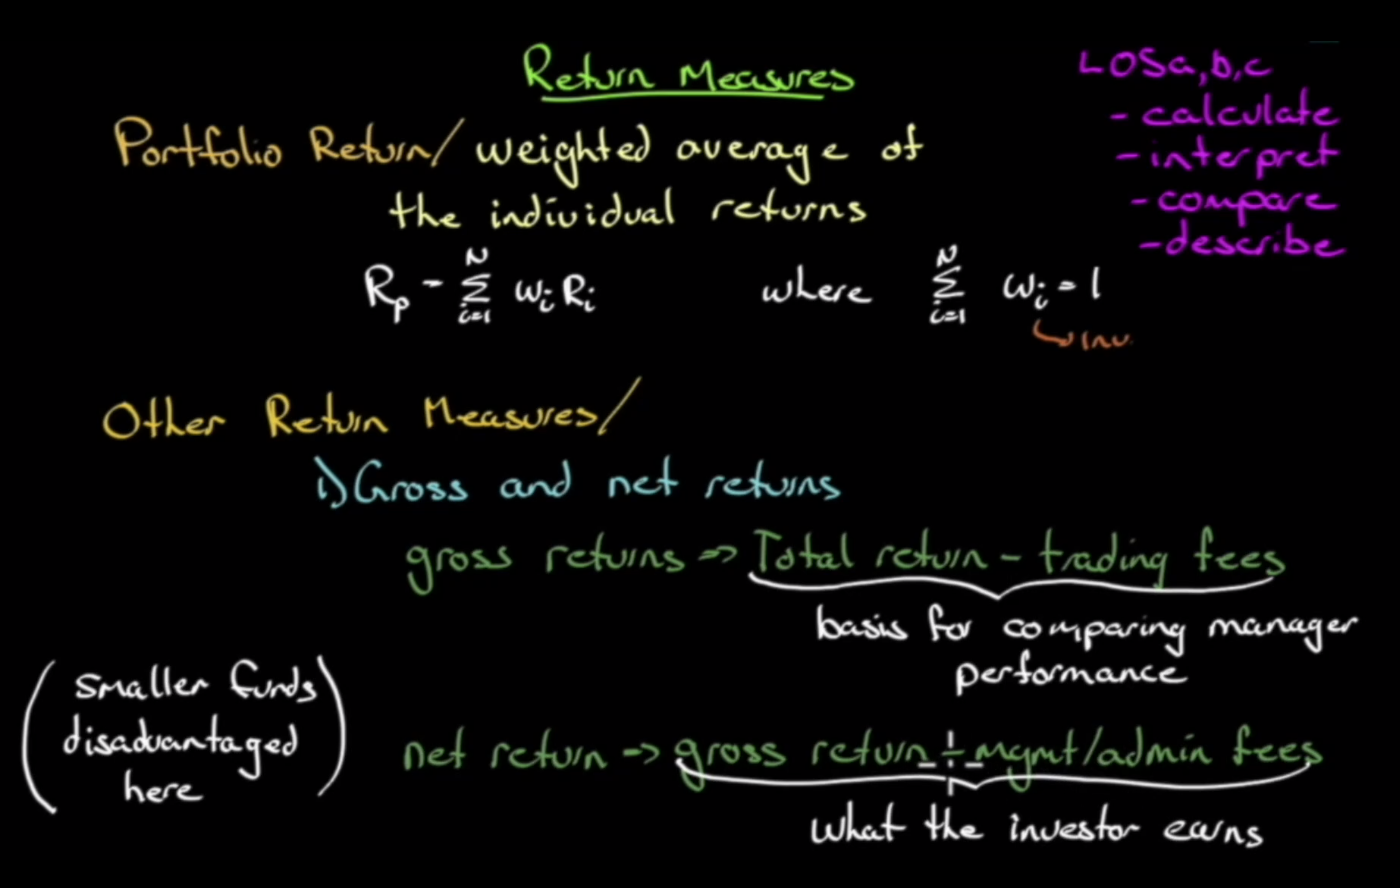 Return Measures
LOS a, b, c
- calculate
- interpret
- compare
- describe
Portfolio Return/ weighted average of
the individual returns
Rp = N Σ i=1 wi Ri where N Σ i=1 wi = 1
↳ inv.
Other Return Measures/
1) Gross and net returns
gross returns => Total return - trading fees
basis for comparing manager
performance
(smaller funds
disadvantaged
here)
net return -> gross return - mgmt/admin fees
what the investor earns